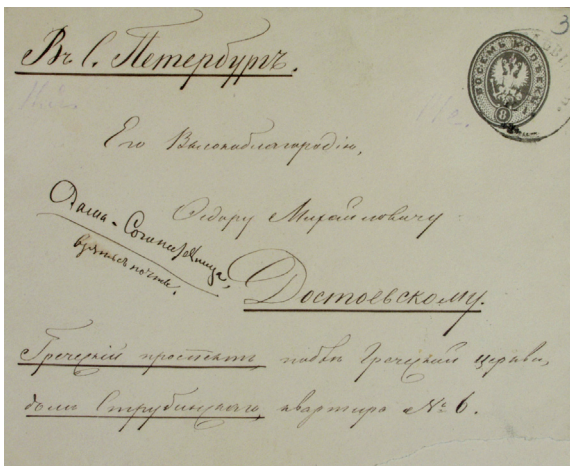 Въ С. Петербургъ.
3
ВОСЕМЬ КОПѢЕКЪ
8
Его Высокоблагородію,
Ѳедору Михайловичу
Достоевскому.
Даша-
почты.
Греческій проспектъ, подлѣ Греческой церкви,
домъ Струбинскаго, квартира № 6.